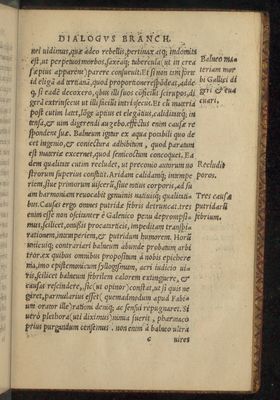 DIALOGVS BRANCH.
uel uidimus, quæ adeo rebellis, pertinax atq; indomita
est, ut perpetuos morbos, saxeaq; tubercula, ut in crea
sæpius apparem) parere consueuit. Et si non uniforte
id eligã ad urnanã, quod proportione respõdeat, adde
q; si eadẽ decoxero, qbus illi suos cõficere scirupos, di
gerã extrinsecus ut illi fucili intrisecus. Et cũ materiã
post cutim latet, lõge aptius et elegãtius, calidũtimã, in
tensã, & uim digerendi ut ebo. effectus enim causæ re
spondent suæ. Balneum igitur ex aqua possibili quo de
cet ingenio, & coniectura adhibitum, quod paratum
est materiæ excernet, quod semicoctum concoquet. Ea
dem qualitate cutim recludet, ut precauo autorum no
strorum superius constitit. Aridam calidamq; intempe
riem, siue primorum uiscerũ, siue totius corporis, ad su
am harmoniam reuocabit genuinis natiuisq; qualitati
bus. Causas ergo omnes putridæ febris detruncat. tres
enim esse non oscitanter è Galenico penu depromps-
mus, scilicet, cutis procatarticis, impeditam transpi-
rationem, intemperiem, & putridum humorem. Horũ
noticiisq; contrariari balneum abunde probatum arbi
tror. ex quibus omnibus propositum à nobis epichere
ma, imo epistemonicum syllogismum, acri iudicio ui-
ris, scilicet balneum febrilem calorem extinguere, &
causas rescindere, sic (ut opinor) constat, ut si quis ne
giret, parmularius esset (quemadmodum apud Fabi-
um orator ille) rationi demũ, ac sensui repugnaret. Si
uerò plethora (uti diximus) nimia fuerit, pharmaco
prius purgandum censemus. non enim à balneo ultra
c uires
Balneo ma
teriam mor
bi Gallici di
geri & eua
cuari.
Recludit
poros.
Tres causæ
putridarũ
febrium.